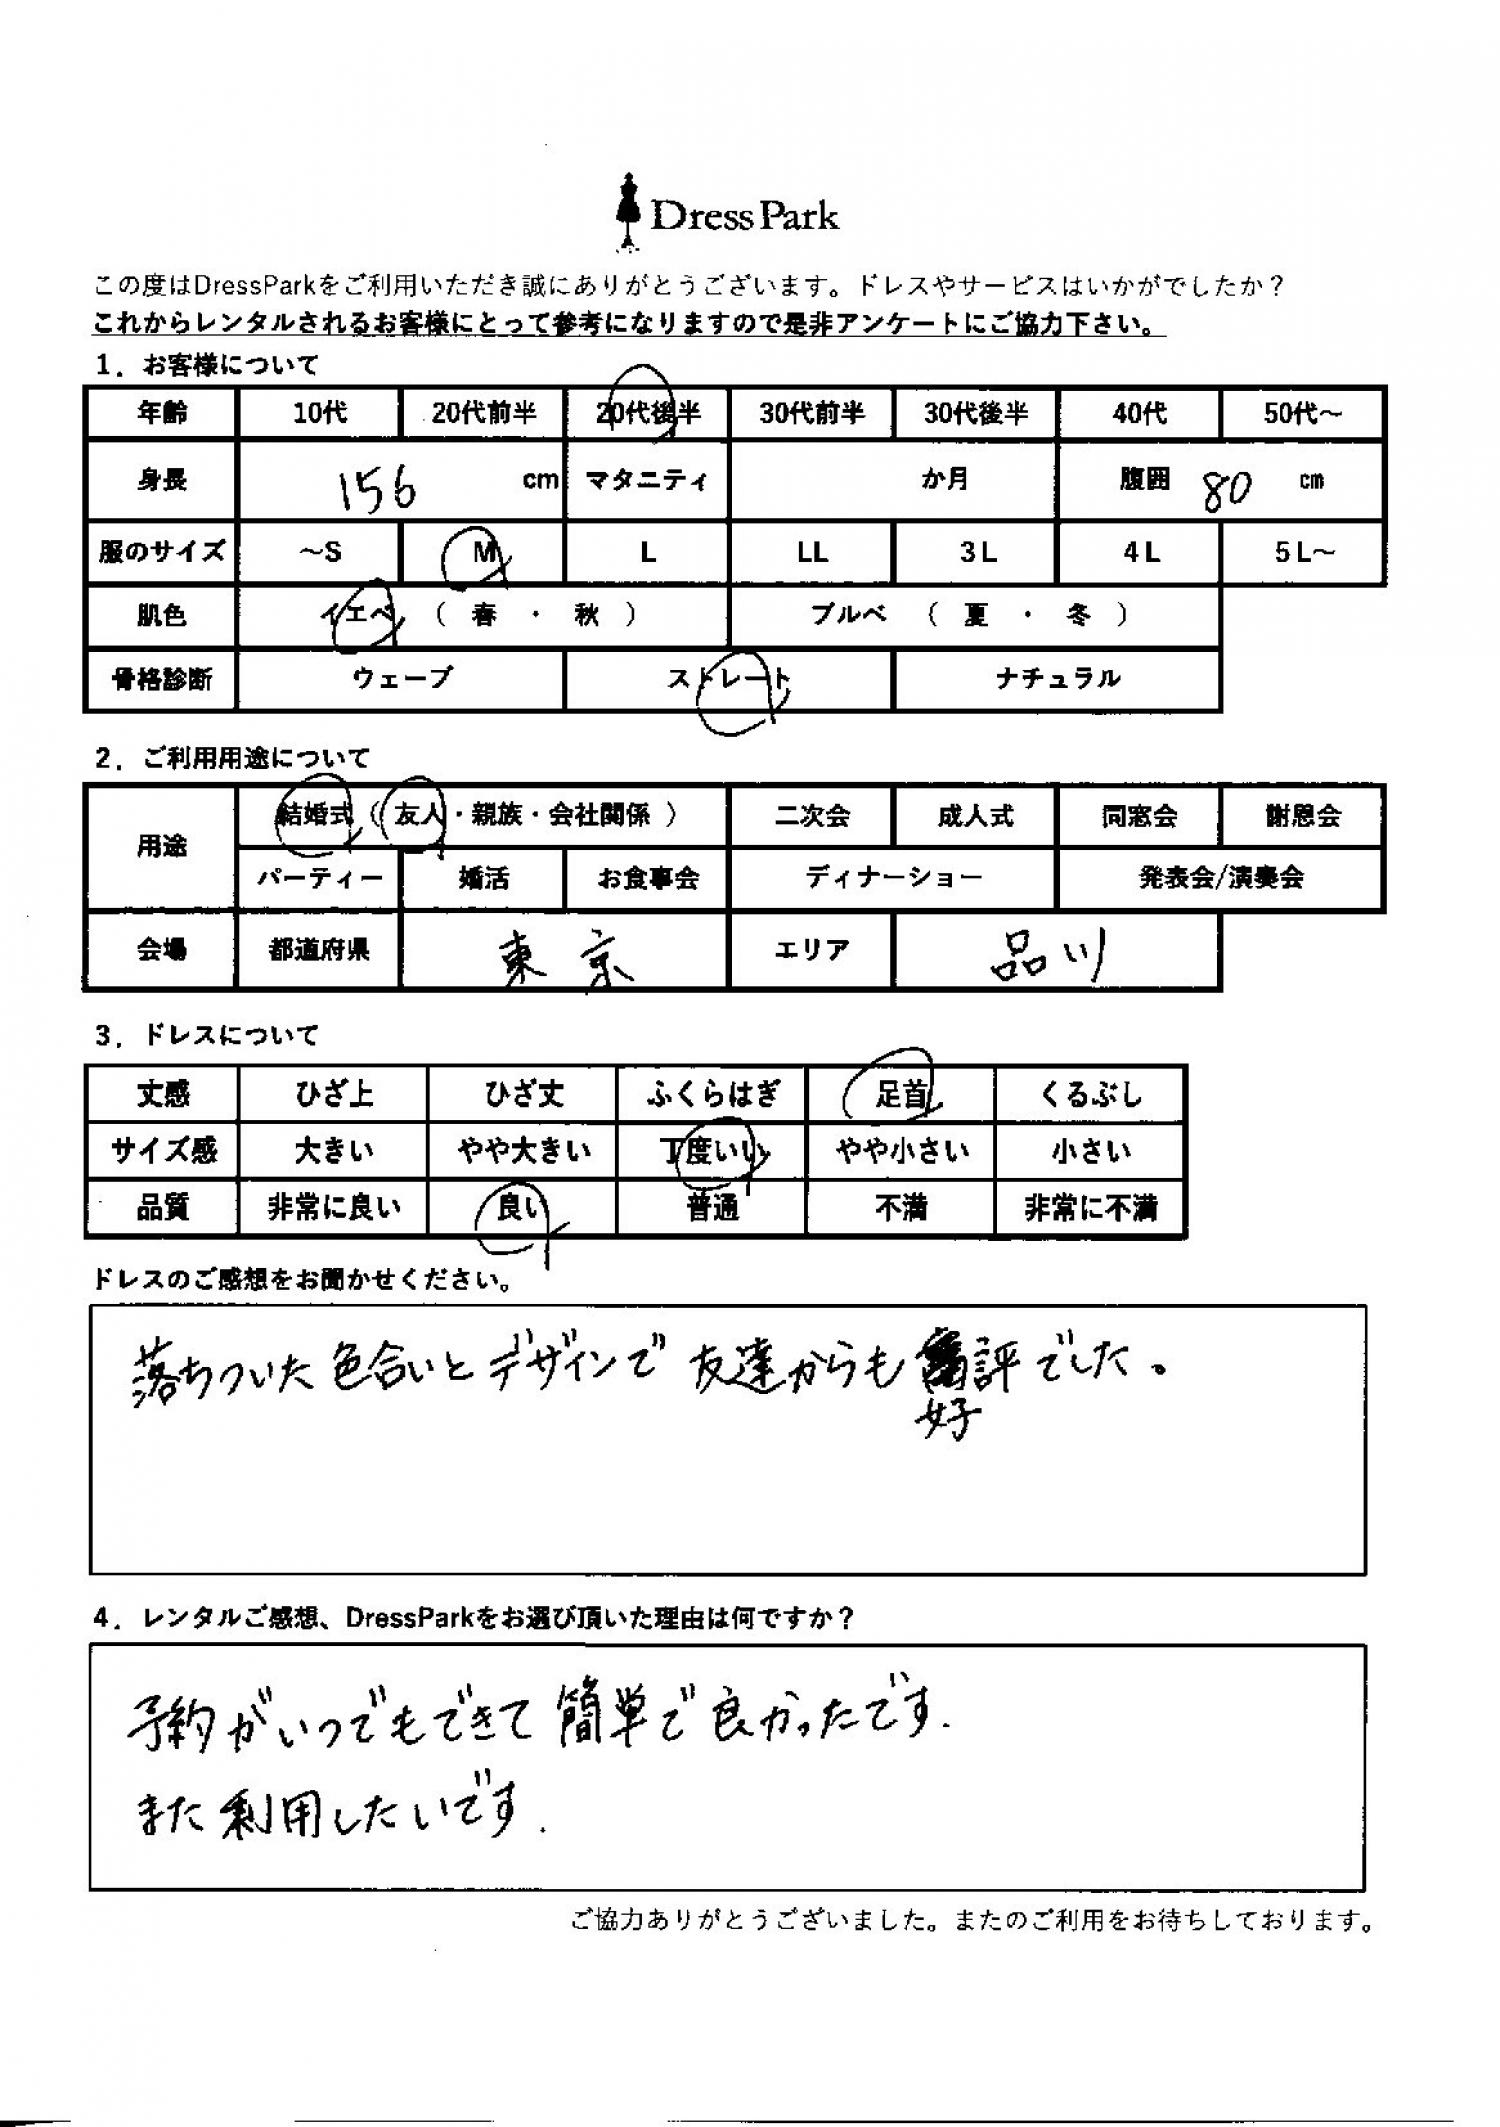 Dress Park
この度はDressParkをご利用いただき誠にありがとうございます。ドレスやサービスはいかがでしたか？
これからレンタルされるお客様にとって参考になりますので是非アンケートにご協力下さい。
1．お客様について
年齢 10代 20代前半 20代後半 30代前半 30代後半 40代 50代～
身長 156 cm マタニティ か月 腹囲 80 cm
服のサイズ ～S M L LL 3L 4L 5L～
肌色 イエベ （ 春 ・ 秋 ） ブルベ （ 夏 ・ 冬 ）
骨格診断 ウェーブ ストレート ナチュラル
2．ご利用用途について
用途 結婚式（友人・親族・会社関係） 二次会 成人式 同窓会 謝恩会
パーティー 婚活 お食事会 ディナーショー 発表会/演奏会
会場 都道府県 東京 エリア 品川
3．ドレスについて
丈感 ひざ上 ひざ丈 ふくらはぎ 足首 くるぶし
サイズ感 大きい やや大きい 丁度いい やや小さい 小さい
品質 非常に良い 良い 普通 不満 非常に不満
ドレスのご感想をお聞かせください。
落ちついた色合いとデザインで友達からも評でした。
好
4．レンタルご感想、DressParkをお選び頂いた理由は何ですか？
予約がいつでもできて簡単で良かったです.
また利用したいです.
ご協力ありがとうございました。またのご利用をお待ちしております。